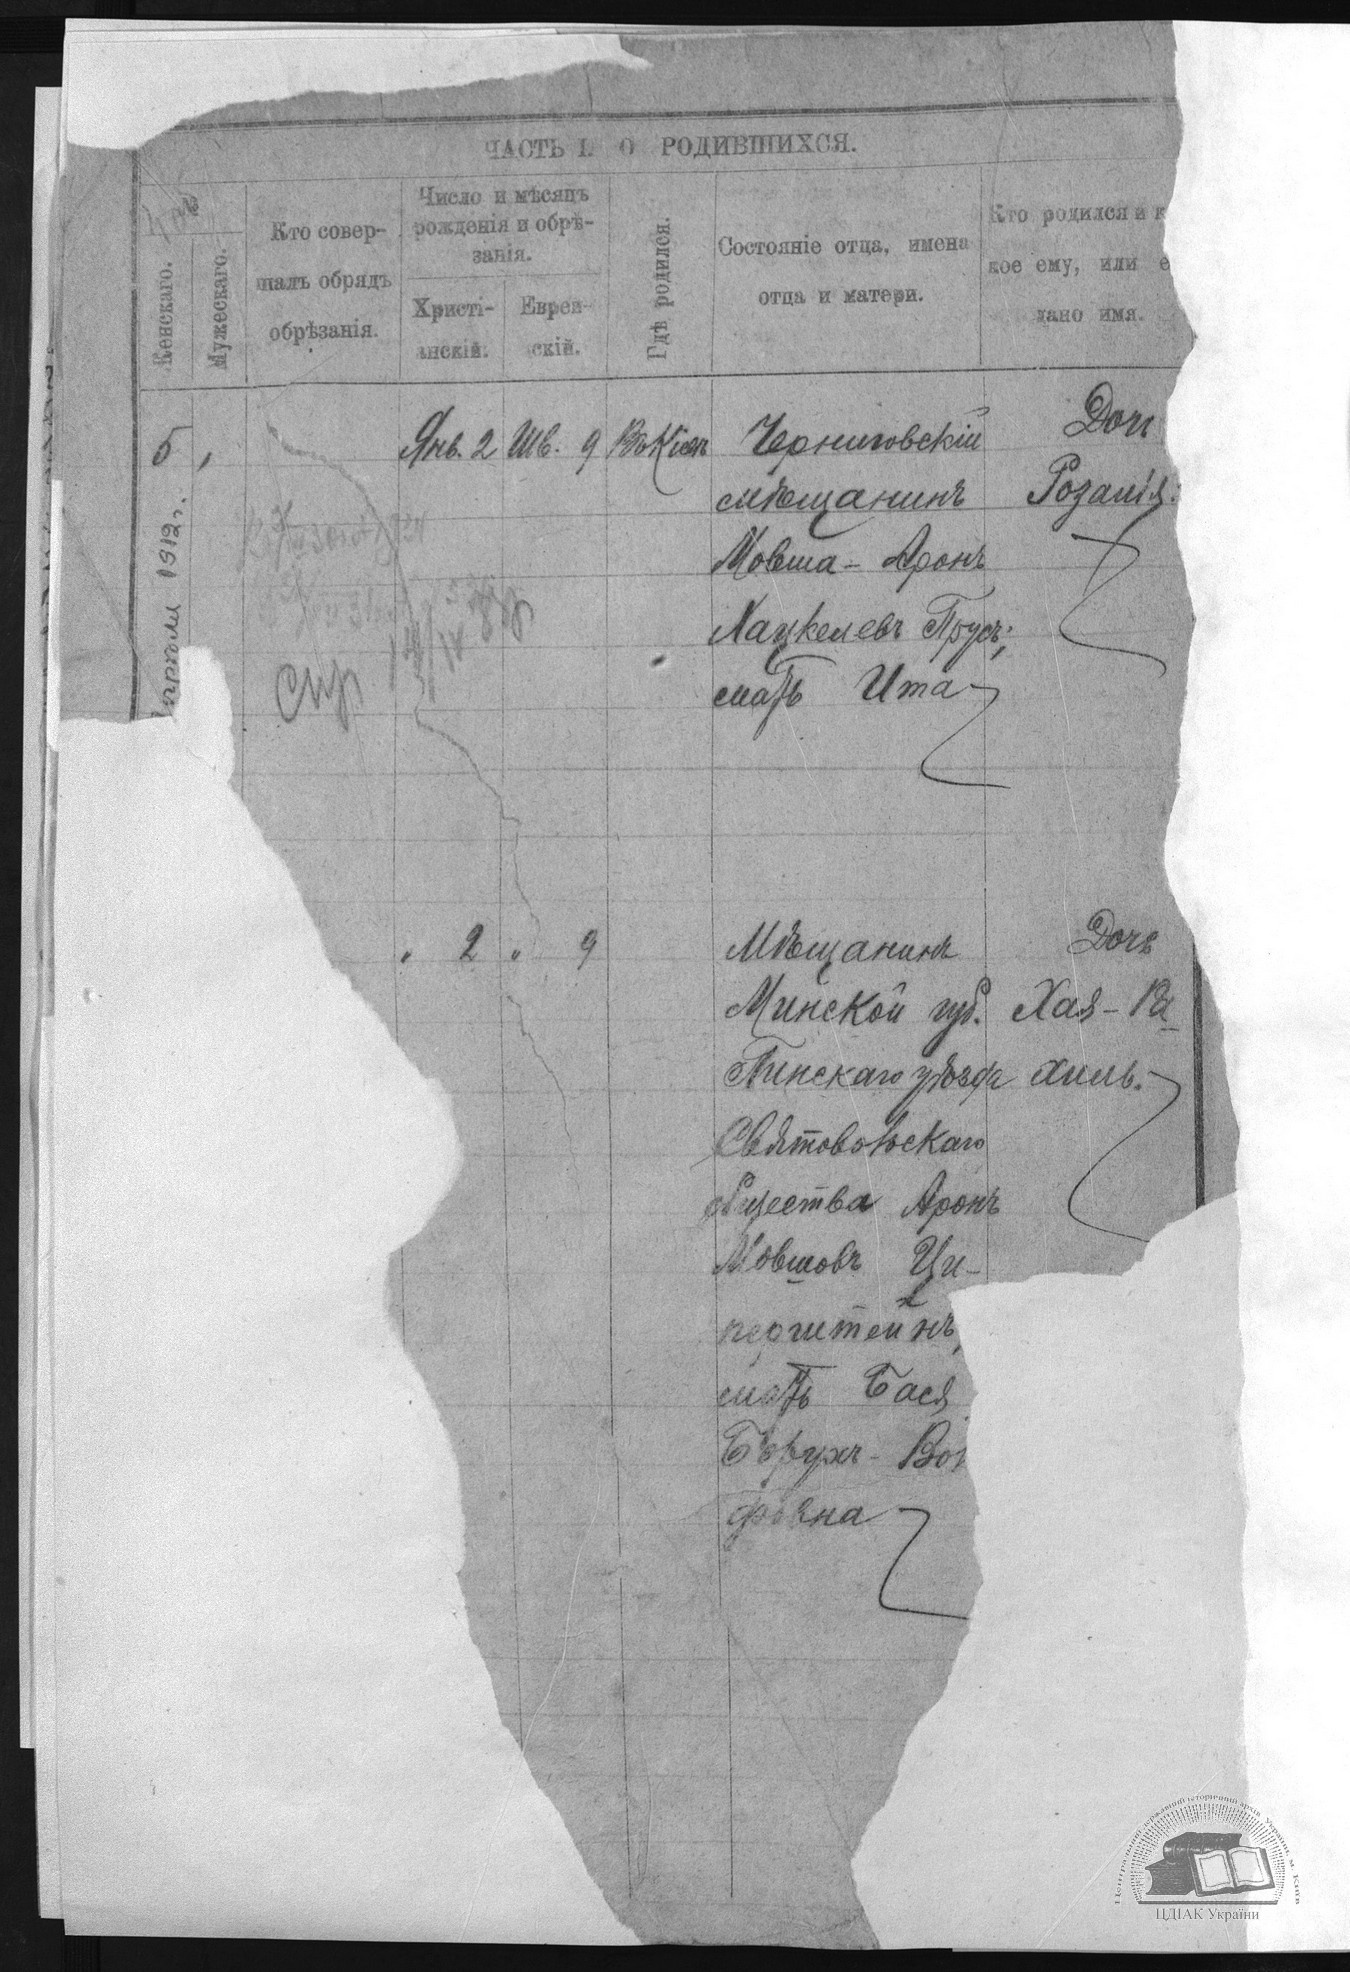 ЧАСТЬ I. О РОДИВШИХСЯ.
№
Женскаго.
Мужескаго.
Кто совер-
шалъ обрядъ
обрѣзанія.
Число и мѣсяцъ
рожденія и обрѣ-
занія.
Христі-
анскій.
Еврей-
скій.
Гдѣ родился.
Состояніе отца, имена
отца и матери.
Кто родился и к
кое ему, или е
дано имя.
5
Янв. 2 Шв. 9 Въ Кіевѣ
Черниговскій
мѣщанинъ
Мовша - Аронъ
Хацкелевъ Прусъ;
мать Ита
Доч
Розалія.
1912 г.
" 2 " 9
Мѣщанинъ
Минской губ.
Пинскаго уѣзда
Святовольскаго
общества Аронъ
Мовшовъ Ци-
перштейнъ,
мать Бася
Борухъ - Вол
фовна
Дочь
Хая - Ра
хиль.
Центральний державний історичний архів України, м. Київ
ЦДІАК України